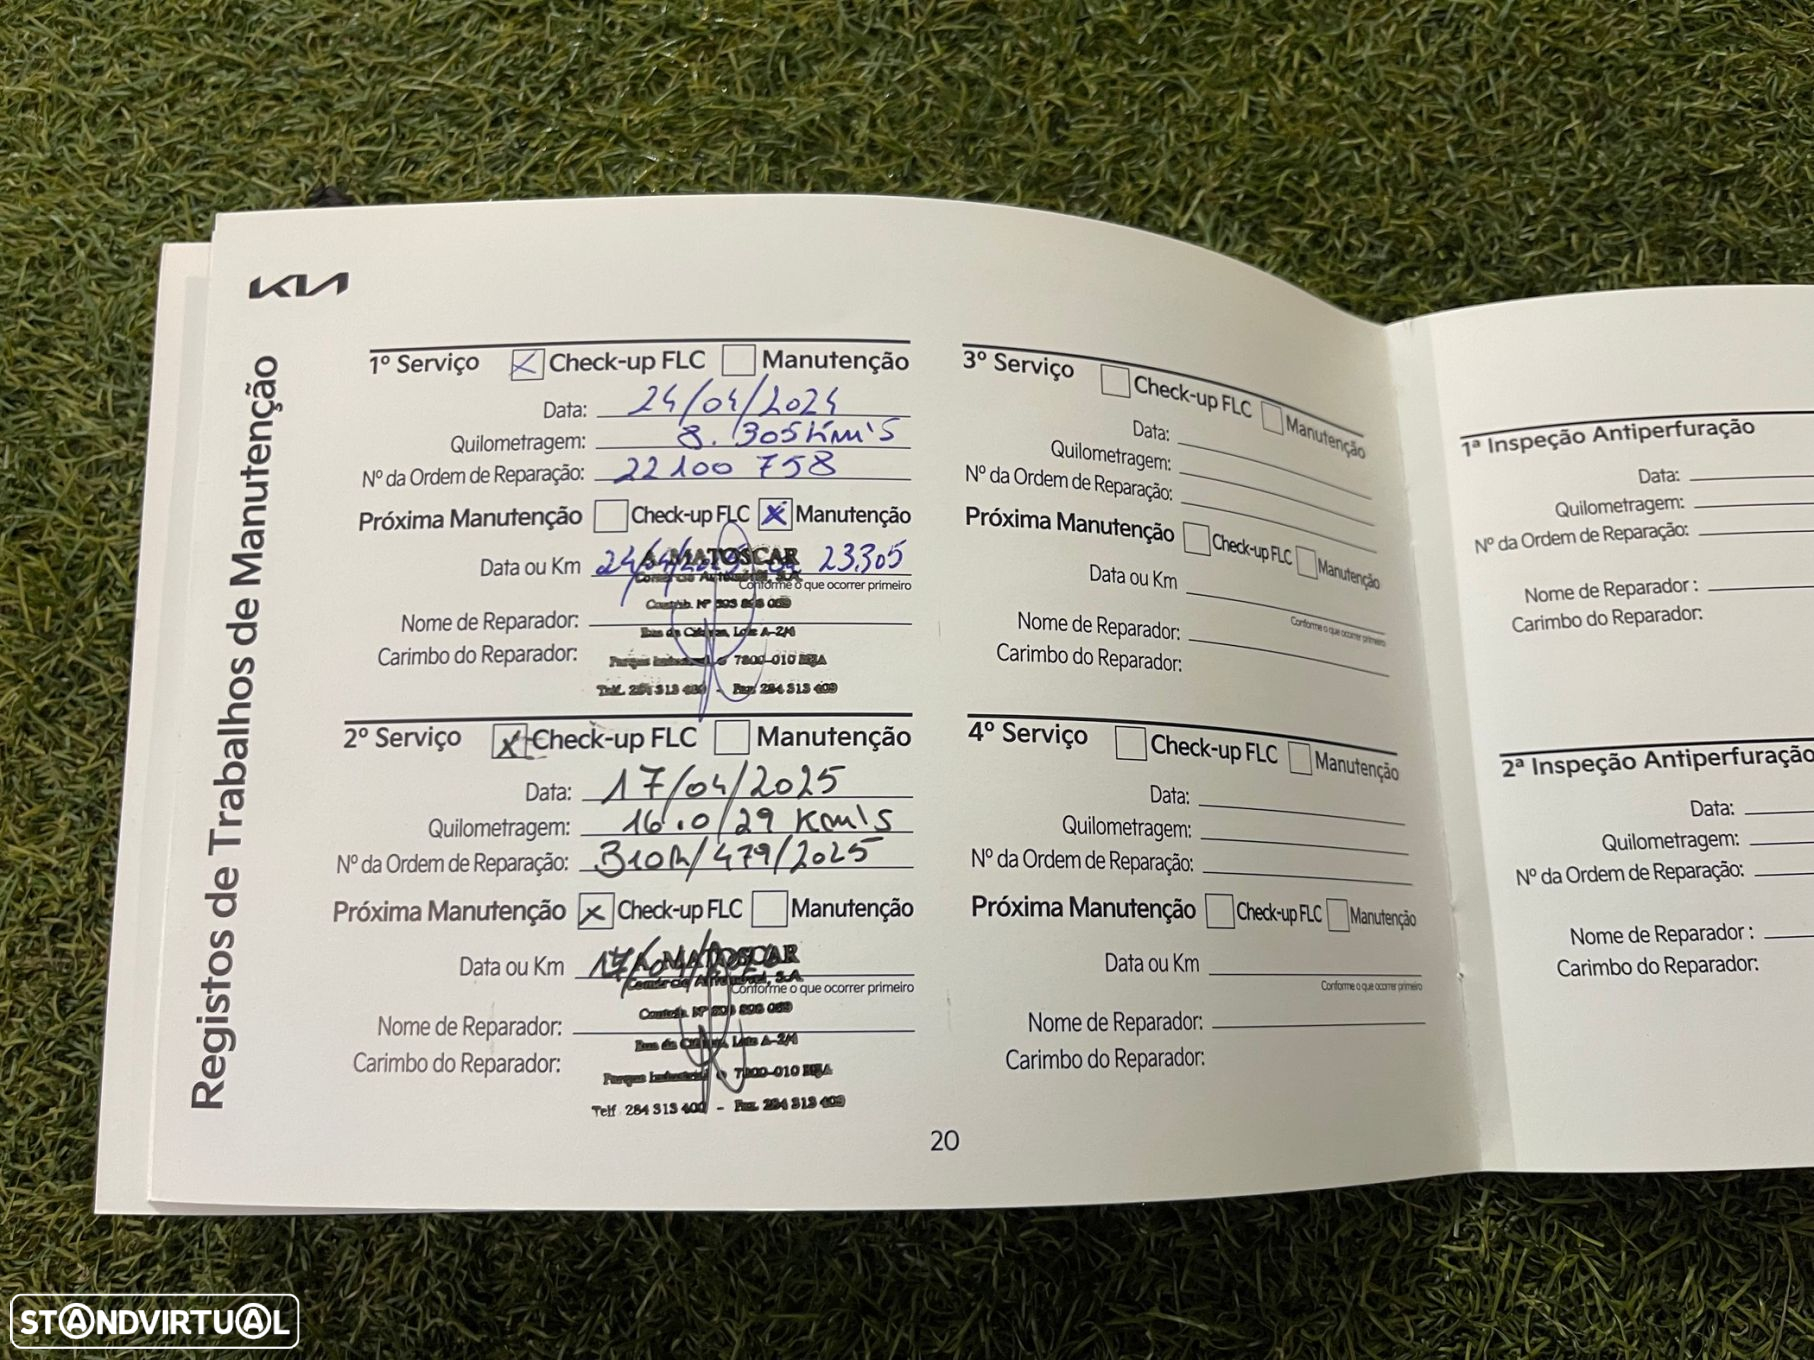 KIA
Registos de Trabalhos de Manutenção
1º Serviço X Check-up FLC Manutenção
Data: 24/04/2024
Quilometragem: 8.305 Km's
Nº da Ordem de Reparação: 22100 758
Próxima Manutenção Check-up FLC X Manutenção
Data ou Km 24/04/2025 23.305
A. MATOSCAR
Comércio Automóvel, S.A.
Conforme o que ocorrer primeiro
Contrib. Nº 503 898 069
Nome de Reparador:
Lote A-2/4
Carimbo do Reparador:
Parque Industrial 7800-010 BEJA
Telf. 284 313 400 - Fax 284 313 409
2º Serviço X Check-up FLC Manutenção
Data: 17/04/2025
Quilometragem: 16.029 Km's
Nº da Ordem de Reparação: /479/2025
Próxima Manutenção X Check-up FLC Manutenção
Data ou Km 17/04/
A. MATOSCAR
Comércio Automóvel, S.A.
Conforme o que ocorrer primeiro
Contrib. Nº 503 898 069
Nome de Reparador:
Lote A-2/4
Carimbo do Reparador:
Parque Industrial 7800-010 BEJA
Telf 284 313 400 - Fax 284 313 409
3º Serviço Check-up FLC Manutenção
Data:
Quilometragem:
Nº da Ordem de Reparação:
Próxima Manutenção Check-up FLC Manutenção
Data ou Km
Conforme o que ocorrer primeiro
Nome de Reparador:
Carimbo do Reparador:
4º Serviço Check-up FLC Manutenção
Data:
Quilometragem:
Nº da Ordem de Reparação:
Próxima Manutenção Check-up FLC Manutenção
Data ou Km
Conforme o que ocorrer primeiro
Nome de Reparador:
Carimbo do Reparador:
20
1ª Inspeção Antiperfuração
Data:
Quilometragem:
Nº da Ordem de Reparação:
Nome de Reparador :
Carimbo do Reparador:
2ª Inspeção Antiperfuração
Data:
Quilometragem:
Nº da Ordem de Reparação:
Nome de Reparador :
Carimbo do Reparador:
STANDVIRTUAL